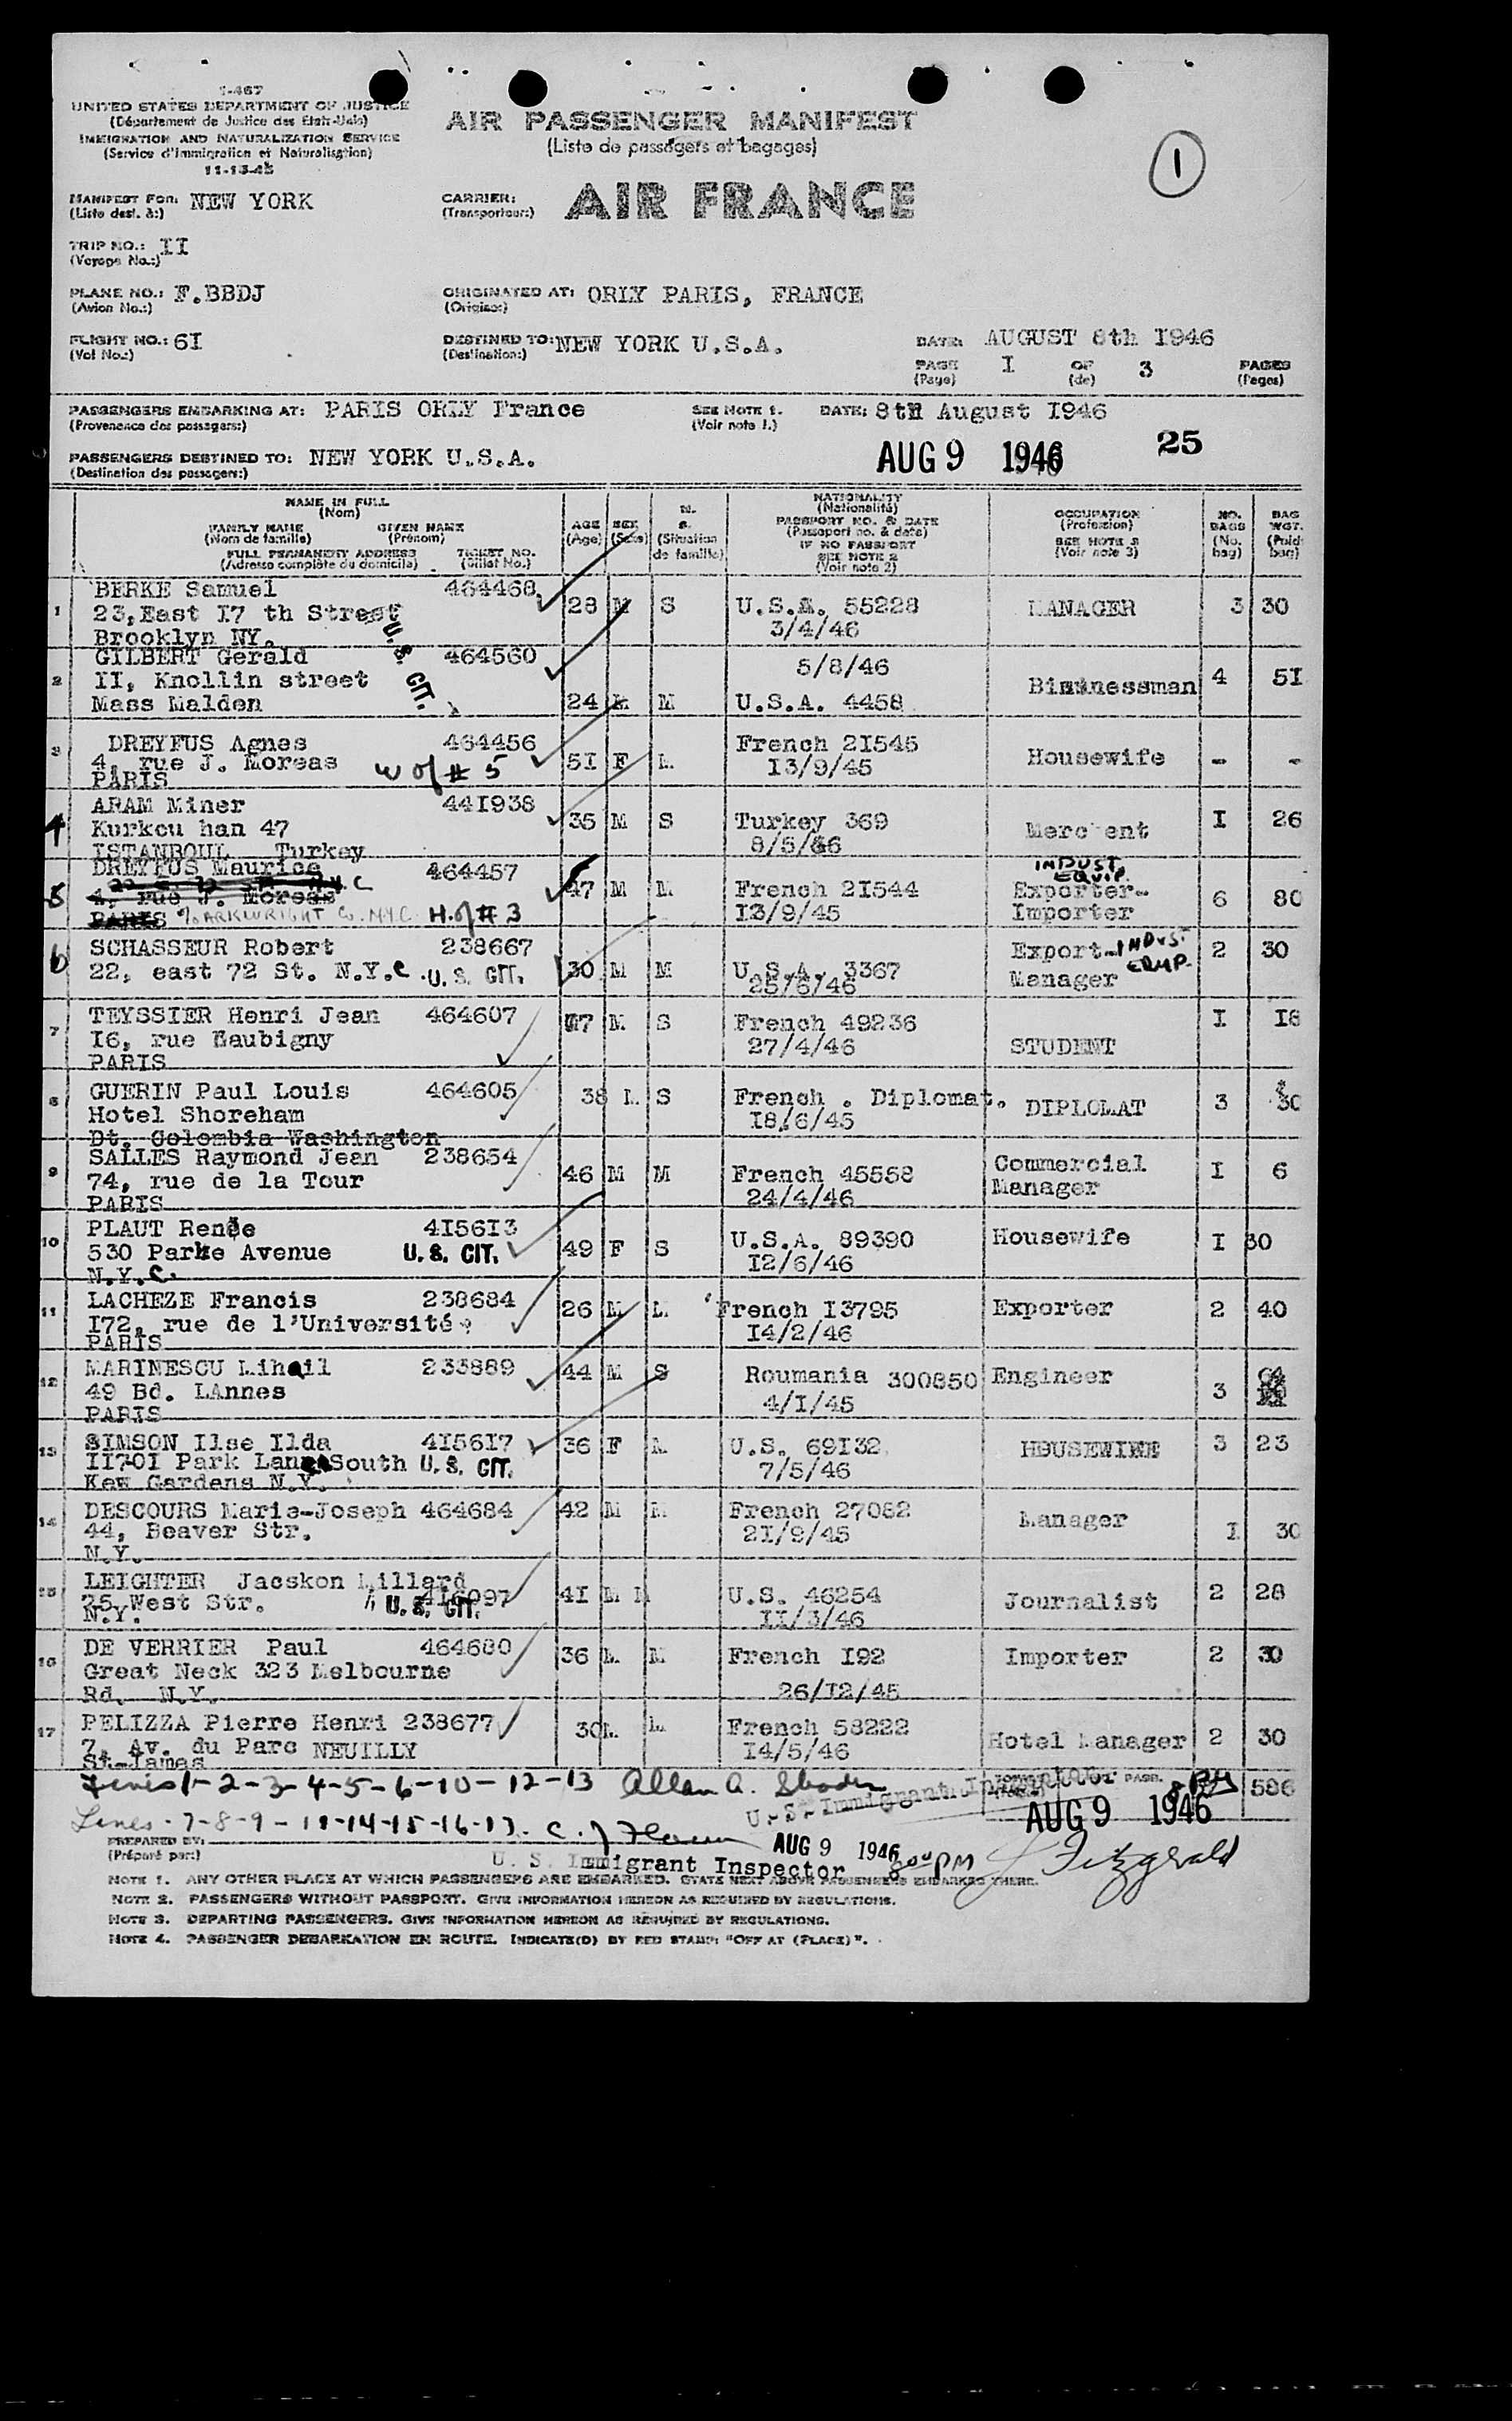 I-467
UNITED STATES DEPARTMENT OF JUSTICE
(Département de Justice des Etats-Unis)
IMMIGRATION AND NATURALIZATION SERVICE
(Service d'Immigration et Naturalisation)
11-13-45
AIR PASSENGER MANIFEST
(Liste de passagers et bagages)
1
MANIFEST FOR: NEW YORK
(Liste dest. à:)
CARRIER: AIR FRANCE
(Transporteur:)
TRIP NO.: II
(Voyage No.:)
PLANE NO.: F.BBDJ
(Avion No.:)
ORIGINATED AT: ORLY PARIS, FRANCE
(Origine:)
FLIGHT NO.: 6I
(Vol No.:)
DESTINED TO: NEW YORK U.S.A.
(Destination:)
DATE: AUGUST 8th I946
PAGE I OF 3 PAGES
(Page) (de) (Pages)
PASSENGERS EMBARKING AT: PARIS ORLY France
(Provenance des passagers:)
SEE NOTE 1.
(Voir note 1.)
DATE: 8th August I946
PASSENGERS DESTINED TO: NEW YORK U.S.A.
(Destination des passagers:)
AUG 9 1946
25
NAME IN FULL
(Nom)
FAMILY NAME GIVEN NAME
(Nom de famille) (Prénom)
FULL PERMANENT ADDRESS TICKET NO.
(Adresse complète du domicile) (Billet No.)
AGE
(Age)
SEX
(Sexe)
M.
S.
(Situation
de famille)
NATIONALITY
(Nationalité)
PASSPORT NO. & DATE
(Passeport no. & date)
IF NO PASSPORT
SEE NOTE 2
(Voir note 2)
OCCUPATION
(Profession)
SEE NOTE 3
(Voir note 3)
NO.
BAGS
(No.
bag)
BAG
WGT.
(Poids
bag)
1 BERKE Samuel 464468 28 M S U.S.A. 55228 MANAGER 3 30
23,East I7 th Street 3/4/46
Brooklyn NY. U.S. CIT.
2 GILBERT Gerald 464560 5/8/46
II, Knollin street Businessman 4 5I
Mass Malden 24 M M U.S.A. 4458
3 DREYFUS Agnes 464456 5I F M French 2I545 Housewife - -
4, rue J. Moreas W of # 5 I3/9/45
PARIS
4 ARAM Miner 44I938 35 M S Turkey 369 Merchent I 26
Kurkcu han 47 8/5/46
ISTANBOUL Turkey
5 DREYFUS Maurice 464457 47 M M French 2I544 INDUST. EQUIP. 6 80
4, rue J. Moreas I3/9/45 Exporter-
PARIS % ARKWRIGHT Co. N.Y.C. H. of # 3 Importer
6 SCHASSEUR Robert 238667 30 M M U.S.A. 3367 Export-INDUST. EQUIP. 2 30
22, east 72 St. N.Y.C. U.S. CIT. 25/6/46 Manager
7 TEYSSIER Henri Jean 464607 M S French 49236 STUDENT I I8
I6, rue Maubigny 27/4/46
PARIS
8 GUERIN Paul Louis 464605 38 M S French . Diplomat. DIPLOMAT 3 30
Hotel Shoreham I8/6/45
Dt. Colombia Washington
9 SALLES Raymond Jean 238654 46 M M French 45558 Commercial I 6
74, rue de la Tour 24/4/46 Manager
PARIS
10 PLAUT Renée 4I56I3 49 F S U.S.A. 89390 Housewife I 30
530 Parke Avenue U. S. CIT. I2/6/46
N.Y.C.
11 LACHEZE Francis 238684 26 M M French I3795 Exporter 2 40
I72, rue de l'Université I4/2/46
PARIS
12 MARINESCU Mihail 233889 44 M S Roumania 300850 Engineer 3
49 Bd. LAnnes 4/I/45
PARIS
13 SIMSON Ilse Ilda 4I56I7 36 F M U.S. 69I32 HOUSEWIFE 3 23
II70I Park Lane South U. S. CIT. 7/5/46
Kew Gardens N.Y.
14 DESCOURS Marie-Joseph 464684 42 M M French 27082 Manager I 30
44, Beaver Str. 2I/9/45
N.Y.
15 LEIGHTER Jacskon Millard 4I6097 4I M M U.S. 46254 Journalist 2 28
25 West Str. U. S. CIT. II/3/46
N.Y.
16 DE VERRIER Paul 464680 36 M M French I92 Importer 2 30
Great Neck 323 Melbourne 26/I2/45
Rd. N.Y.
17 PELIZZA Pierre Henri 238677 30 M M French 58222 Hotel Manager 2 30
7, Av. du Parc NEUILLY I4/5/46
St-James
Lines 1-2-3-4-5-6-10-12-13 Allan A.
U. S. Immigrant Inspector 586
AUG 9 1946
Lines - 7-8-9-11-14-15-16-17. C. J.
AUG 9 1946 8 00 PM
U. S. Immigrant Inspector
Fitzgerald
PREPARED BY:
(Préparé par:)
NOTE 1. ANY OTHER PLACE AT WHICH PASSENGERS ARE EMBARKED. STATE NEXT ABOVE PASSENGERS EMBARKED THERE.
NOTE 2. PASSENGERS WITHOUT PASSPORT. GIVE INFORMATION HEREON AS REQUIRED BY REGULATIONS.
NOTE 3. DEPARTING PASSENGERS. GIVE INFORMATION HEREON AS REQUIRED BY REGULATIONS.
NOTE 4. PASSENGER DEBARKATION EN ROUTE. INDICATE(D) BY RED STAMP: "OFF AT (PLACE)".